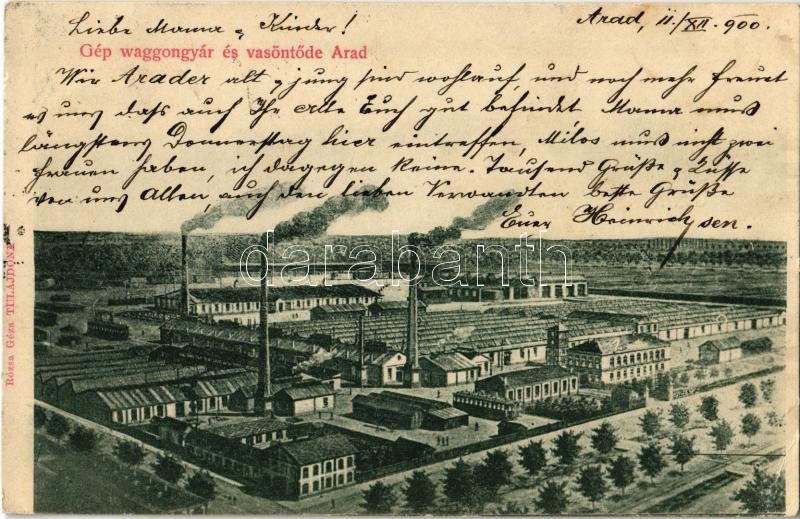 Liebe Mama & Kinder!
Arad, 11./XII. 900.
Gép waggongyár és vasöntőde Arad
Wir Arader alt & jung sind wohlauf und noch mehr freuet
es uns dass auch Ihr alle Euch gut befindet Mama muss
längstens Donnerstag hier eintreffen, Milos muss nicht zwei
Frauen haben, ich dagegen keine. Tausend Grüße & Küsse
von uns Allen, auch den lieben Verwandten beste Grüße
Euer Heinrich sen.
darabanth
Rózsa Géza TULAJDONA